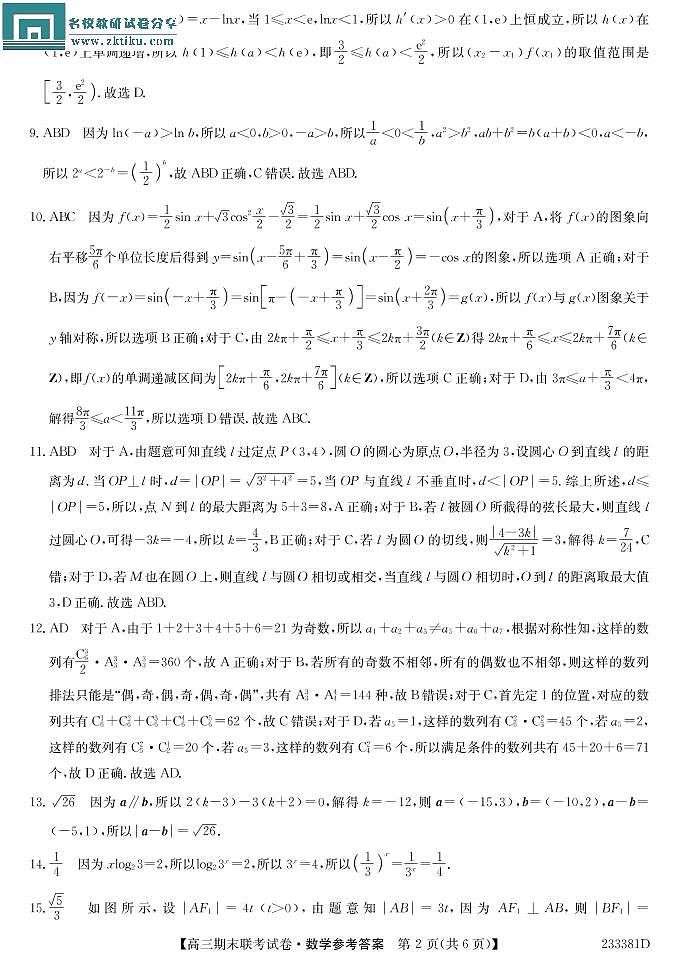 名校教研试卷分享
www.zktiku.com
)=x-lnx,当 1≤x<e,lnx<1,所以 h′(x)>0 在(1,e)上恒成立,所以 h(x)在
(1,e)上单调递增,所以 h(1)≤h(a)<h(e),即 3/2≤h(a)<e²/2,所以(x₂-x₁)f(x₁)的取值范围是
[3/2,e²/2).故选 D.
9. ABD 因为 ln(-a)>ln b,所以 a<0,b>0,-a>b,所以 1/a<0<1/b,a²>b²,ab+b²=b(a+b)<0,a<-b,
所以 2ᵃ<2⁻ᵇ=(1/2)ᵇ,故 ABD 正确,C 错误.故选 ABD.
10. ABC 因为 f(x)=1/2 sin x+√3cos² x/2-√3/2=1/2 sin x+√3/2 cos x=sin(x+π/3),对于 A,将 f(x)的图象向
右平移5π/6个单位长度后得到 y=sin(x-5π/6+π/3)=sin(x-π/2)=-cos x的图象,所以选项 A 正确;对于
B,因为 f(-x)=sin(-x+π/3)=sin[π-(-x+π/3)]=sin(x+2π/3)=g(x),所以 f(x)与 g(x)图象关于
y 轴对称,所以选项 B 正确;对于 C,由 2kπ+π/2≤x+π/3≤2kπ+3π/2(k∈Z)得 2kπ+π/6≤x≤2kπ+7π/6(k∈
Z),即 f(x)的单调递减区间为[2kπ+π/6,2kπ+7π/6](k∈Z),所以选项 C 正确;对于 D,由 3π≤a+π/3<4π,
解得8π/3≤a<11π/3,所以选项 D 错误.故选 ABC.
11. ABD 对于 A,由题意可知直线 l 过定点 P(3,4),圆 O 的圆心为原点 O,半径为 3,设圆心 O 到直线 l 的距
离为 d.当 OP⊥l 时,d=|OP|=√(3²+4²)=5,当 OP 与直线 l 不垂直时,d<|OP|=5.综上所述,d≤
|OP|=5,所以,点 N 到 l 的最大距离为 5+3=8,A 正确;对于 B,若 l 被圆 O 所截得的弦长最大,则直线 l
过圆心 O,可得-3k=-4,所以 k=4/3,B 正确;对于 C,若 l 为圆 O 的切线,则|4-3k|/√(k²+1)=3,解得 k=7/24,C
错;对于 D,若 M 也在圆 O 上,则直线 l 与圆 O 相切或相交,当直线 l 与圆 O 相切时,O 到 l 的距离取最大值
3,D 正确.故选 ABD.
12. AD 对于 A,由于 1+2+3+4+5+6=21 为奇数,所以 a₁+a₂+a₃≠a₅+a₆+a₇,根据对称性知,这样的数
列有C₆³/2·A₃³·A₃³=360 个,故 A 正确;对于 B,若所有的奇数不相邻,所有的偶数也不相邻,则这样的数列
排法只能是“偶,奇,偶,奇,偶,奇,偶”,共有 A₃³·A₄⁴=144 种,故 B 错误;对于 C,首先定 1 的位置,对应的数
列共有 C₆¹+C₆²+C₆³+C₆⁴+C₆⁵=62 个,故 C 错误;对于 D,若 a₅=1,这样的数列有 C₆²·C₃²=45 个,若 a₅=2,
这样的数列有 C₅²·C₂¹=20 个,若 a₅=3,这样的数列有 C₄²=6 个,所以满足条件的数列共有 45+20+6=71
个,故 D 正确.故选 AD.
13. √26 因为 a∥b,所以 2(k-3)-3(k+2)=0,解得 k=-12,则 a=(-15,3),b=(-10,2),a-b=
(-5,1),所以|a-b|=√26.
14. 1/4 因为 xlog₂3=2,所以log₂3ˣ=2,所以 3ˣ=4,所以(1/3)ˣ=1/3ˣ=1/4.
15. √5/3 如图所示,设|AF₁|=4t(t>0),由题意知|AB|=3t,因为 AF₁⊥AB,则|BF₁|=
【高三期末联考试卷·数学参考答案 第 2 页(共 6 页)】 233381D